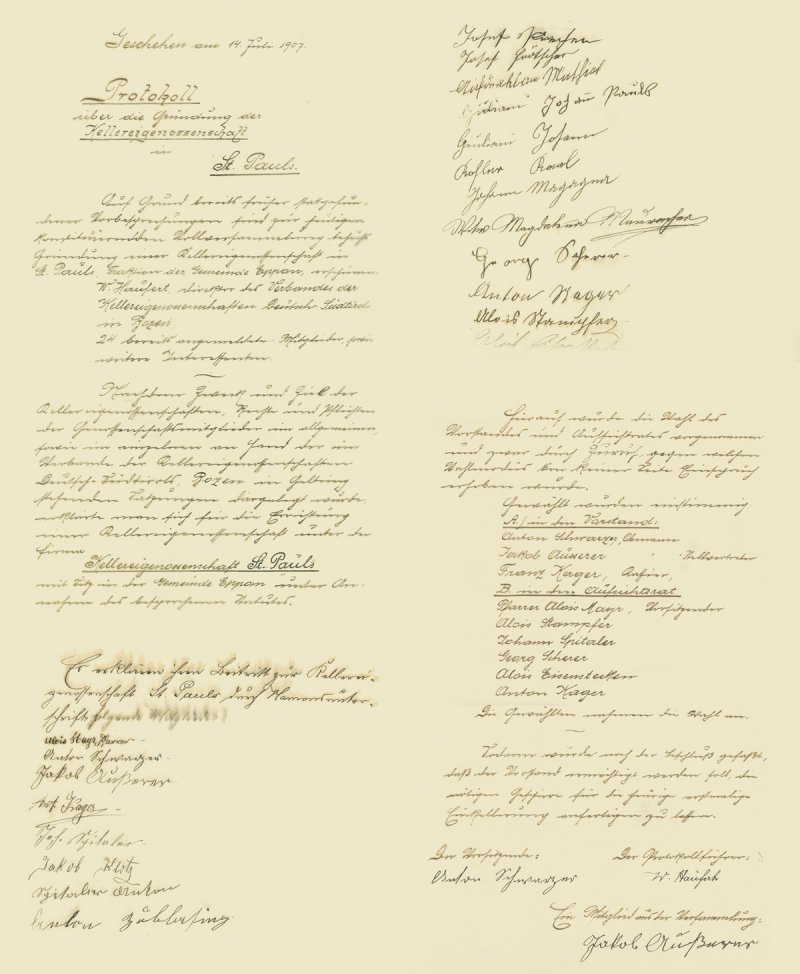 Geschehen am 14. Juli 1907.
Protokoll
über die Gründung der
Kellereigenossenschaft
in
St. Pauls.
Auf Grund bereits früher stattgefun-
dener Vorbesprechungen sind zur heutigen
konstituierenden Vollversammlung behufs
Gründung einer Kellereigenossenschaft in
St. Pauls, Fraktion der Gemeinde Eppan, erschienen:
W. Hausert, Direktor des Verbandes der
Kellereigenossenschaften Deutsch-Südtirols
in Bozen.
24 bereits angemeldete Mitglieder, sowie
weitere Interessenten.
Nachdem Zweck und Ziel der
Kellereigenossenschaften, Rechte und Pflichten
der Genossenschaftsmitglieder im allgemeinen,
sowie im einzelnen an Hand der im
Verbande der Kellereigenossenschaften
Deutsch-Südtirols, Bozen in Geltung
stehenden Satzungen dargelegt wurde,
erklärte man sich für die Errichtung
einer Kellereigenossenschaft unter der
Firma
Kellereigenossenschaft St. Pauls
mit Sitz in der Gemeinde Eppan unter An-
nahme des besprochenen Statutes.
Es erklären ihren Beitritt zur Kellerei-
genossenschaft St. Pauls durch Namensunter-
schrift folgende Mitglieder:
Alois Mayr, Pfarrer
Anton Schwarzer
Jakob Außerer
Ant. Kager
Joh. Spitaler
Jakob Klotz
Spitaler Anton
Anton Zublasing
Josef
Josef
Mathias
Giuliani Johann Pauls
Giuliani Johann
Kohler Karl
Johann Magagna
Witwe Magdalena
Georg Scherer
Anton Kager
Alois Stampfer
Hierauf wurde die Wahl des
Vorstandes und Aufsichtsrates vorgenommen
und zwar durch Zuruf, gegen welchen
Wahlmodus von keiner Seite Einspruch
erhoben wurde.
Gewählt wurden einstimmig
A.) in den Vorstand:
Anton Schwarzer, Obmann
Jakob Ausserer " -Stellvertreter
Franz Kager, Kassier,
B. in den Aufsichtsrat
Pfarrer Alois Mayr, Vorsitzender
Alois Stampfer
Johann Spitaler
Georg Scherer
Alois Eisenstecken
Anton Kager
Die Gewählten nahmen die Wahl an.
Sodann wurde noch der Beschluß gefaßt,
daß der Vorstand ermächtigt werden soll, den
nötigen Geschirre für die heurige erstmalige
Einkellerung anfertigen zu lassen.
Der Vorsitzende: Der Protokollführer:
Anton Schwarzer W. Hausert
Ein Mitglied aus der Versammlung:
Jakob Außerer